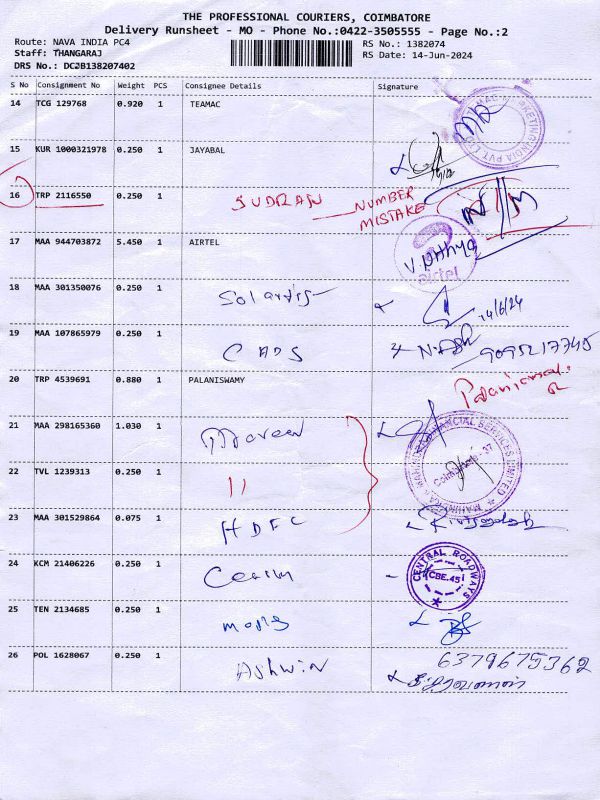 THE PROFESSIONAL COURIERS, COIMBATORE
Delivery Runsheet - MO - Phone No.:0422-3505555 - Page No.:2
Route: NAVA INDIA PC4
Staff: THANGARAJ
DRS No.: DCJB138207402
RS No.: 1382074
RS Date: 14-Jun-2024
S No Consignment No Weight PCS Consignee Details Signature
14 TCG 129768 0.920 1 TEAMAC
15 KUR 1000321978 0.250 1 JAYABAL
16 TRP 2116550 0.250 1 SUDRAN NUMBER
MISTAKE
17 MAA 944703872 5.450 1 AIRTEL
airtel
18 MAA 301350076 0.250 1 14/6/24
19 MAA 107865979 0.250 1 CADS
20 TRP 4539691 0.880 1 PALANISWAMY
21 MAA 298165360 1.030 1
22 TVL 1239313 0.250 1 "
23 MAA 301529864 0.075 1 HDFC
24 KCM 21406226 0.250 1
CENTRAL ROADWAYS
CBE.45
25 TEN 2134685 0.250 1
26 POL 1628067 0.250 1 Ashwin 6379675362